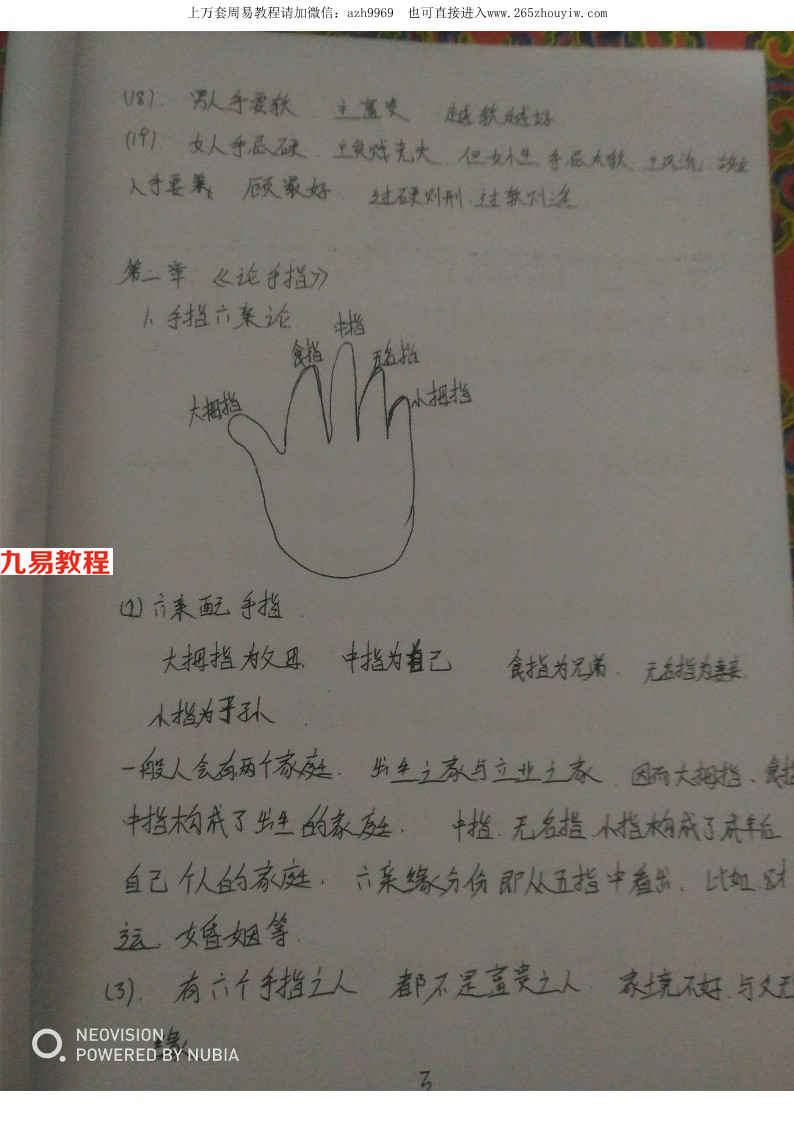 上万套周易教程请加微信：azh9969 也可直接进入www.265zhouyiw.com
(18). 男人手要软 主富贵 越软越好
(19) 女人手忌硬 主 大 但女性手忌太软 主风流
人手要 顾家好 过硬则刑 过软则淫
第二章 《论手指》
1、手指六亲论
中指
食指 无名指
大拇指 小拇指
九易教程
(1) 六亲配手指
大拇指为父母 中指为自己 食指为兄弟. 无名指为妻妾
小指为子孙
一般人会有两个家庭. 出生之家与立业之家 因而大拇指、食指
中指构成了出生的家庭. 中指. 无名指 小指构成了成年后
自己个人的家庭. 六亲缘分份即从五指中看出. 比如 财
运 女婚姻等.
(3). 有六个手指之人 都不是富贵之人 家境不好 与父无
缘
NEOVISION
POWERED BY NUBIA